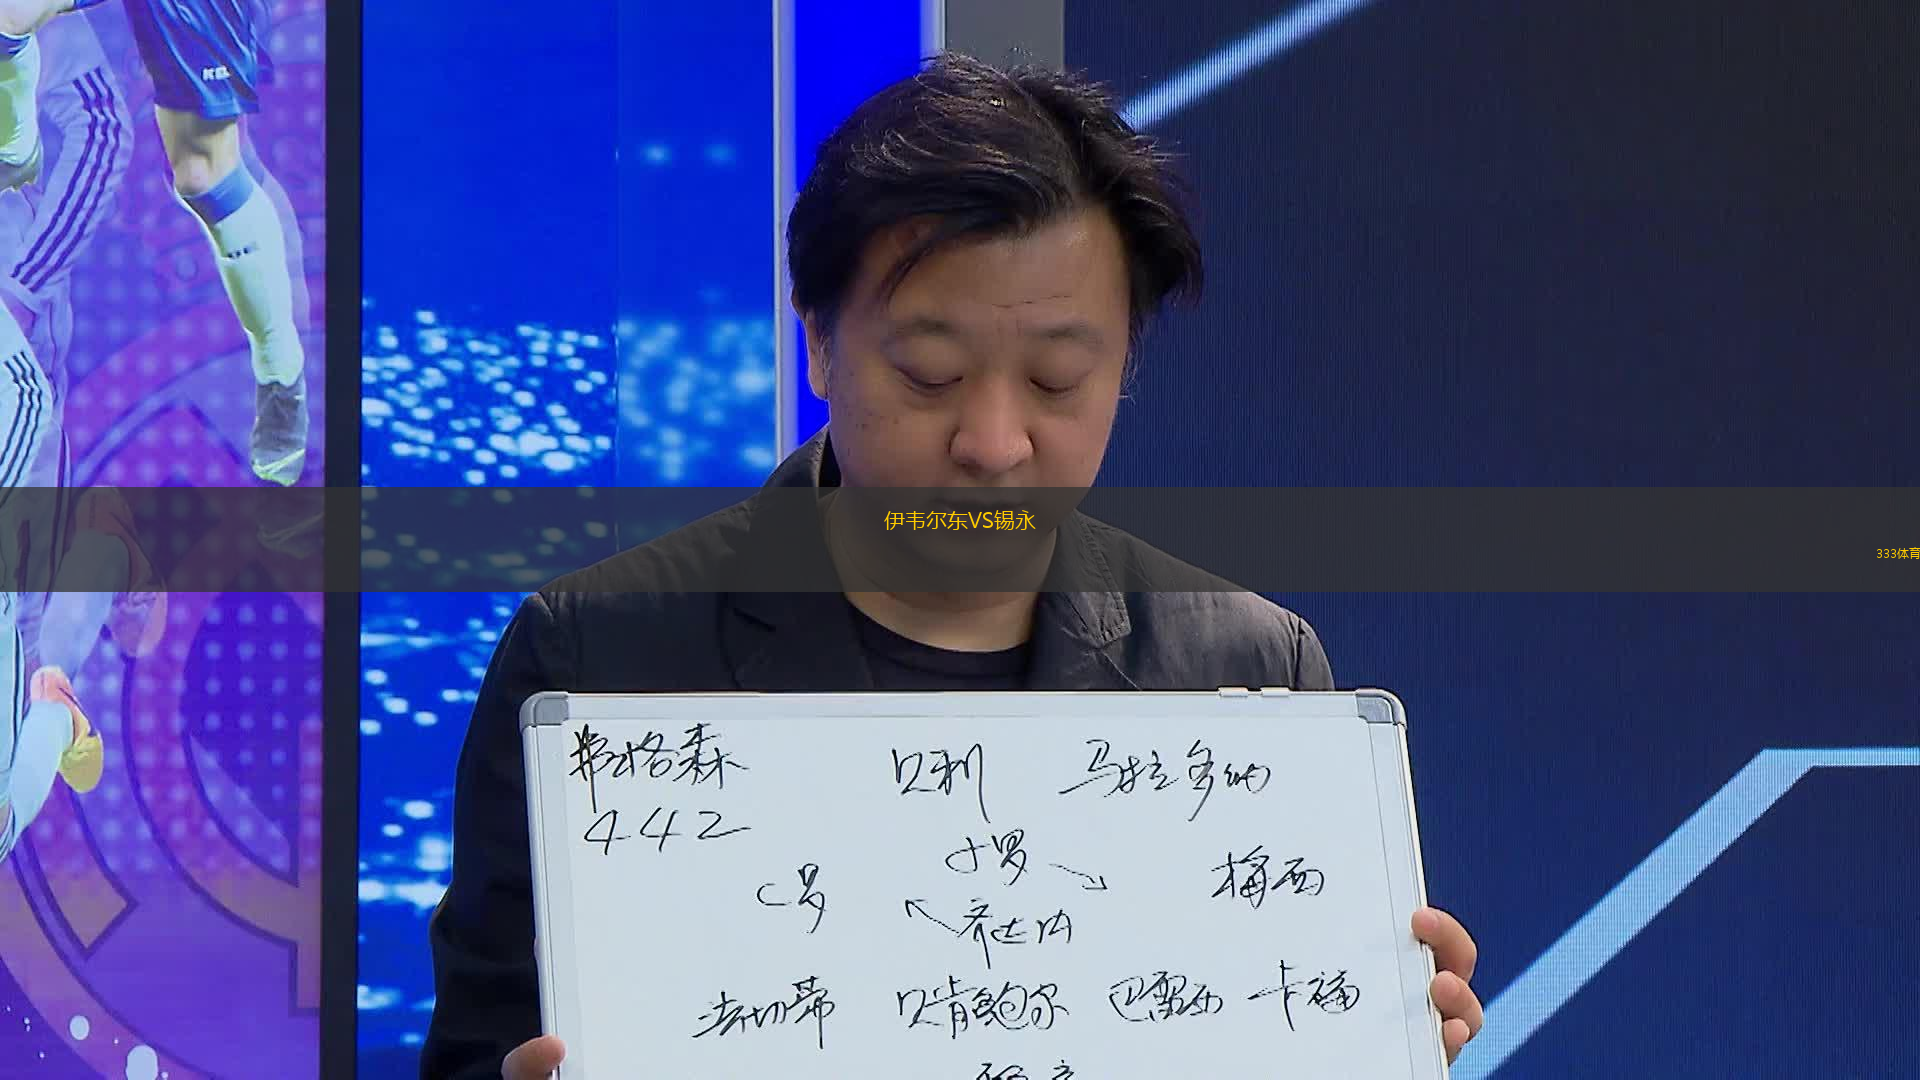 KEL
伊韦尔东VS锡永
333体育
弗格森 贝利 马拉多纳
442
小罗
C罗 梅西
齐达内
法切蒂 贝肯鲍尔 巴雷西 卡福